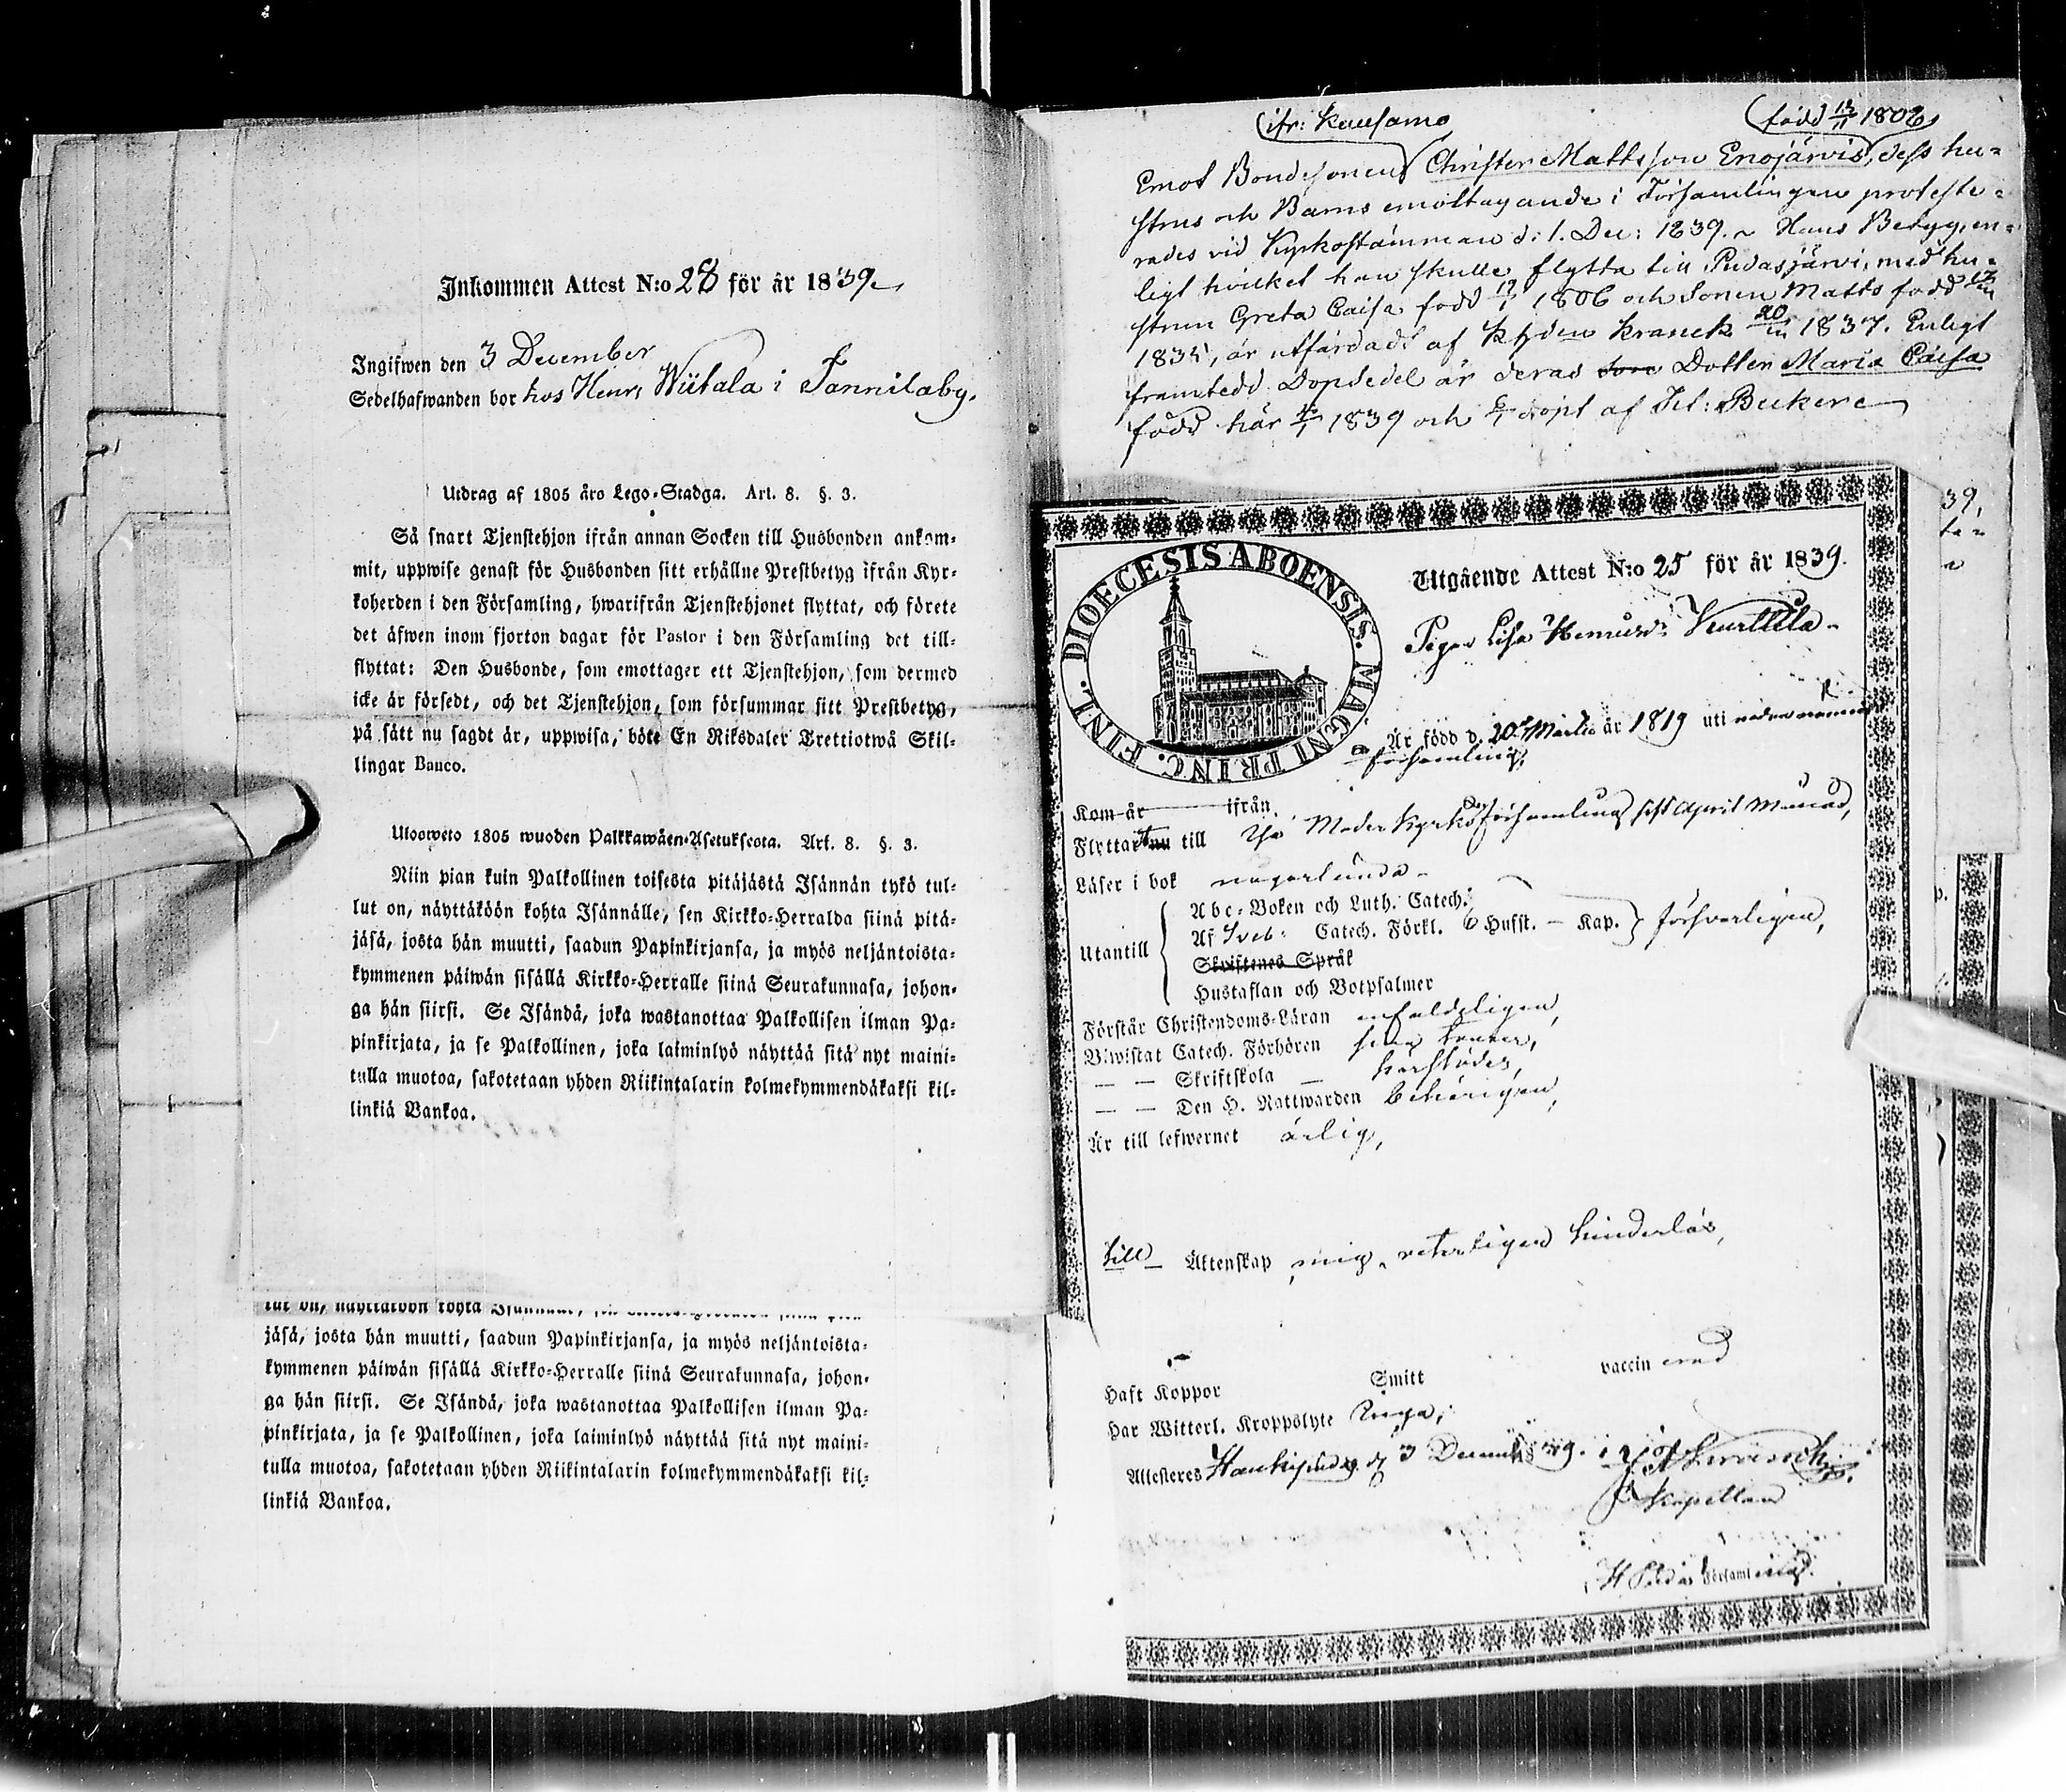 Inkommen Attest N:o 28 för år 1839
Ingifwen den 3 December
Sedelhafwanden bor hos Henr Wiitala i Jannilaby.
Utdrag af 1805 års Lego-Stadga. Art. 8. §. 3.
Så snart Tjenstehjon ifrån annan Socken till Husbonden ankom-
mit, uppwise genast för Husbonden sitt erhållne Prestbetyg ifrån Kyr-
koherden i den Församling, hwarifrån Tjenstehjonet flyttat, och förete
det äfwen inom fjorton dagar för Pastor i den Församling det till-
flyttat: Den Husbonde, som emottager ett Tjenstehjon, som dermed
icke är försedt, och det Tjenstehjon, som försummar sitt Prestbetyg,
på sätt nu sagdt är, uppwisa, böte En Riksdaler Trettiotwå Skil-
lingar Banco.
Ulosweto 1805 wuoden Palkkawäen-Asetuksesta. Art. 8. §. 3.
Niin pian kuin Palkollinen toisesta pitäjästä Isännän tykö tul-
lut on, näyttäköön kohta Isännälle, sen Kirkko-Herralda siinä pitä-
jäsä, josta hän muutti, saadun Papinkirjansa, ja myös neljäntoista-
kymmenen päiwän sisällä Kirkko-Herralle siinä Seurakunnasa, johon-
ga hän siirsi. Se Isändä, joka wastanottaa Palkollisen ilman Pa-
pinkirjata, ja se Palkollinen, joka laiminlyö näyttää sitä nyt maini-
tulla muotoa, sakotetaan yhden Riikintalarin kolmekymmendäkaksi kil-
linkiä Bankoa.
jäsä, josta hän muutti, saadun Papinkirjansa, ja myös neljäntoista-
kymmenen päiwän sisällä Kirkko-Herralle siinä Seurakunnasa, johon-
ga hän siirsi. Se Isändä, joka wastanottaa Palkollisen ilman Pa-
pinkirjata, ja se Palkollinen, joka laiminlyö näyttää sitä nyt maini-
tulla muotoa, sakotetaan yhden Riikintalarin kolmekymmendäkaksi kil-
linkiä Bankoa.
ifr: Kuusamo född 1806
Emot Bondesonens Christer Mattsson Enojärvis, dess hu-
strus och Barns emottagande i Församlingen proteste-
rades vid Kyrkostämman d: 1. Dec: 1839. Hans Betyg, en-
ligt hvilket han skulle flytta till Pudasjärvi, med hu-
strun Greta Caisa född 17/1 1806 och Sonen Matts född
1835, är utfärdadt af Khden Kranck 1837. Enligt
framtedd Dopsedel är deras Dotter Maria Caisa
född här 1839 och döpt af
DIOECESIS ABOENSIS. MAGNI PRINC. FINL.
Utgående Attest N:o 25 för år 1839.
Pigan Lisa Henricsd:r Kurttila
Är född d. 20 Martii år 1819 uti
församling,
Kom år ifrån
Flyttar nu till Moder Kyrko församling sist April Månad,
Läser i bok någorlunda
Abc-Boken och Luth. Catech.
Af Sveb: Catech. Förkl. 6 Hufst. – Kap. } försvarligen,
Utantill
Skriftenes Språk
Hustaflan och Botpsalmer
Förstår Christendoms-Läran enfaldeligen,
Biwistat Catech. Förhören
— — Skriftskola —
— — Den H. Nattwarden behörigen,
Är till lefwernet ärlig,
till Äktenskap mig veterligen hinderlös,
Haft Koppor Smitt vaccin erad
Har Witterl. Kroppslyte Inga,
Attesteras Haukipudas d. 3 December 39.
Kapellan
i H Pudas Församling.
39,